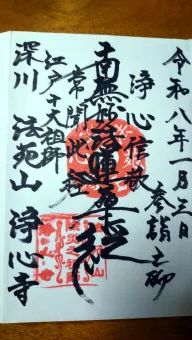 令和八年一月三日
参詣之砌
浄心信敬
南無妙法蓮華経
常聞此経
江戸十大祖師
深川 法苑山 浄心寺